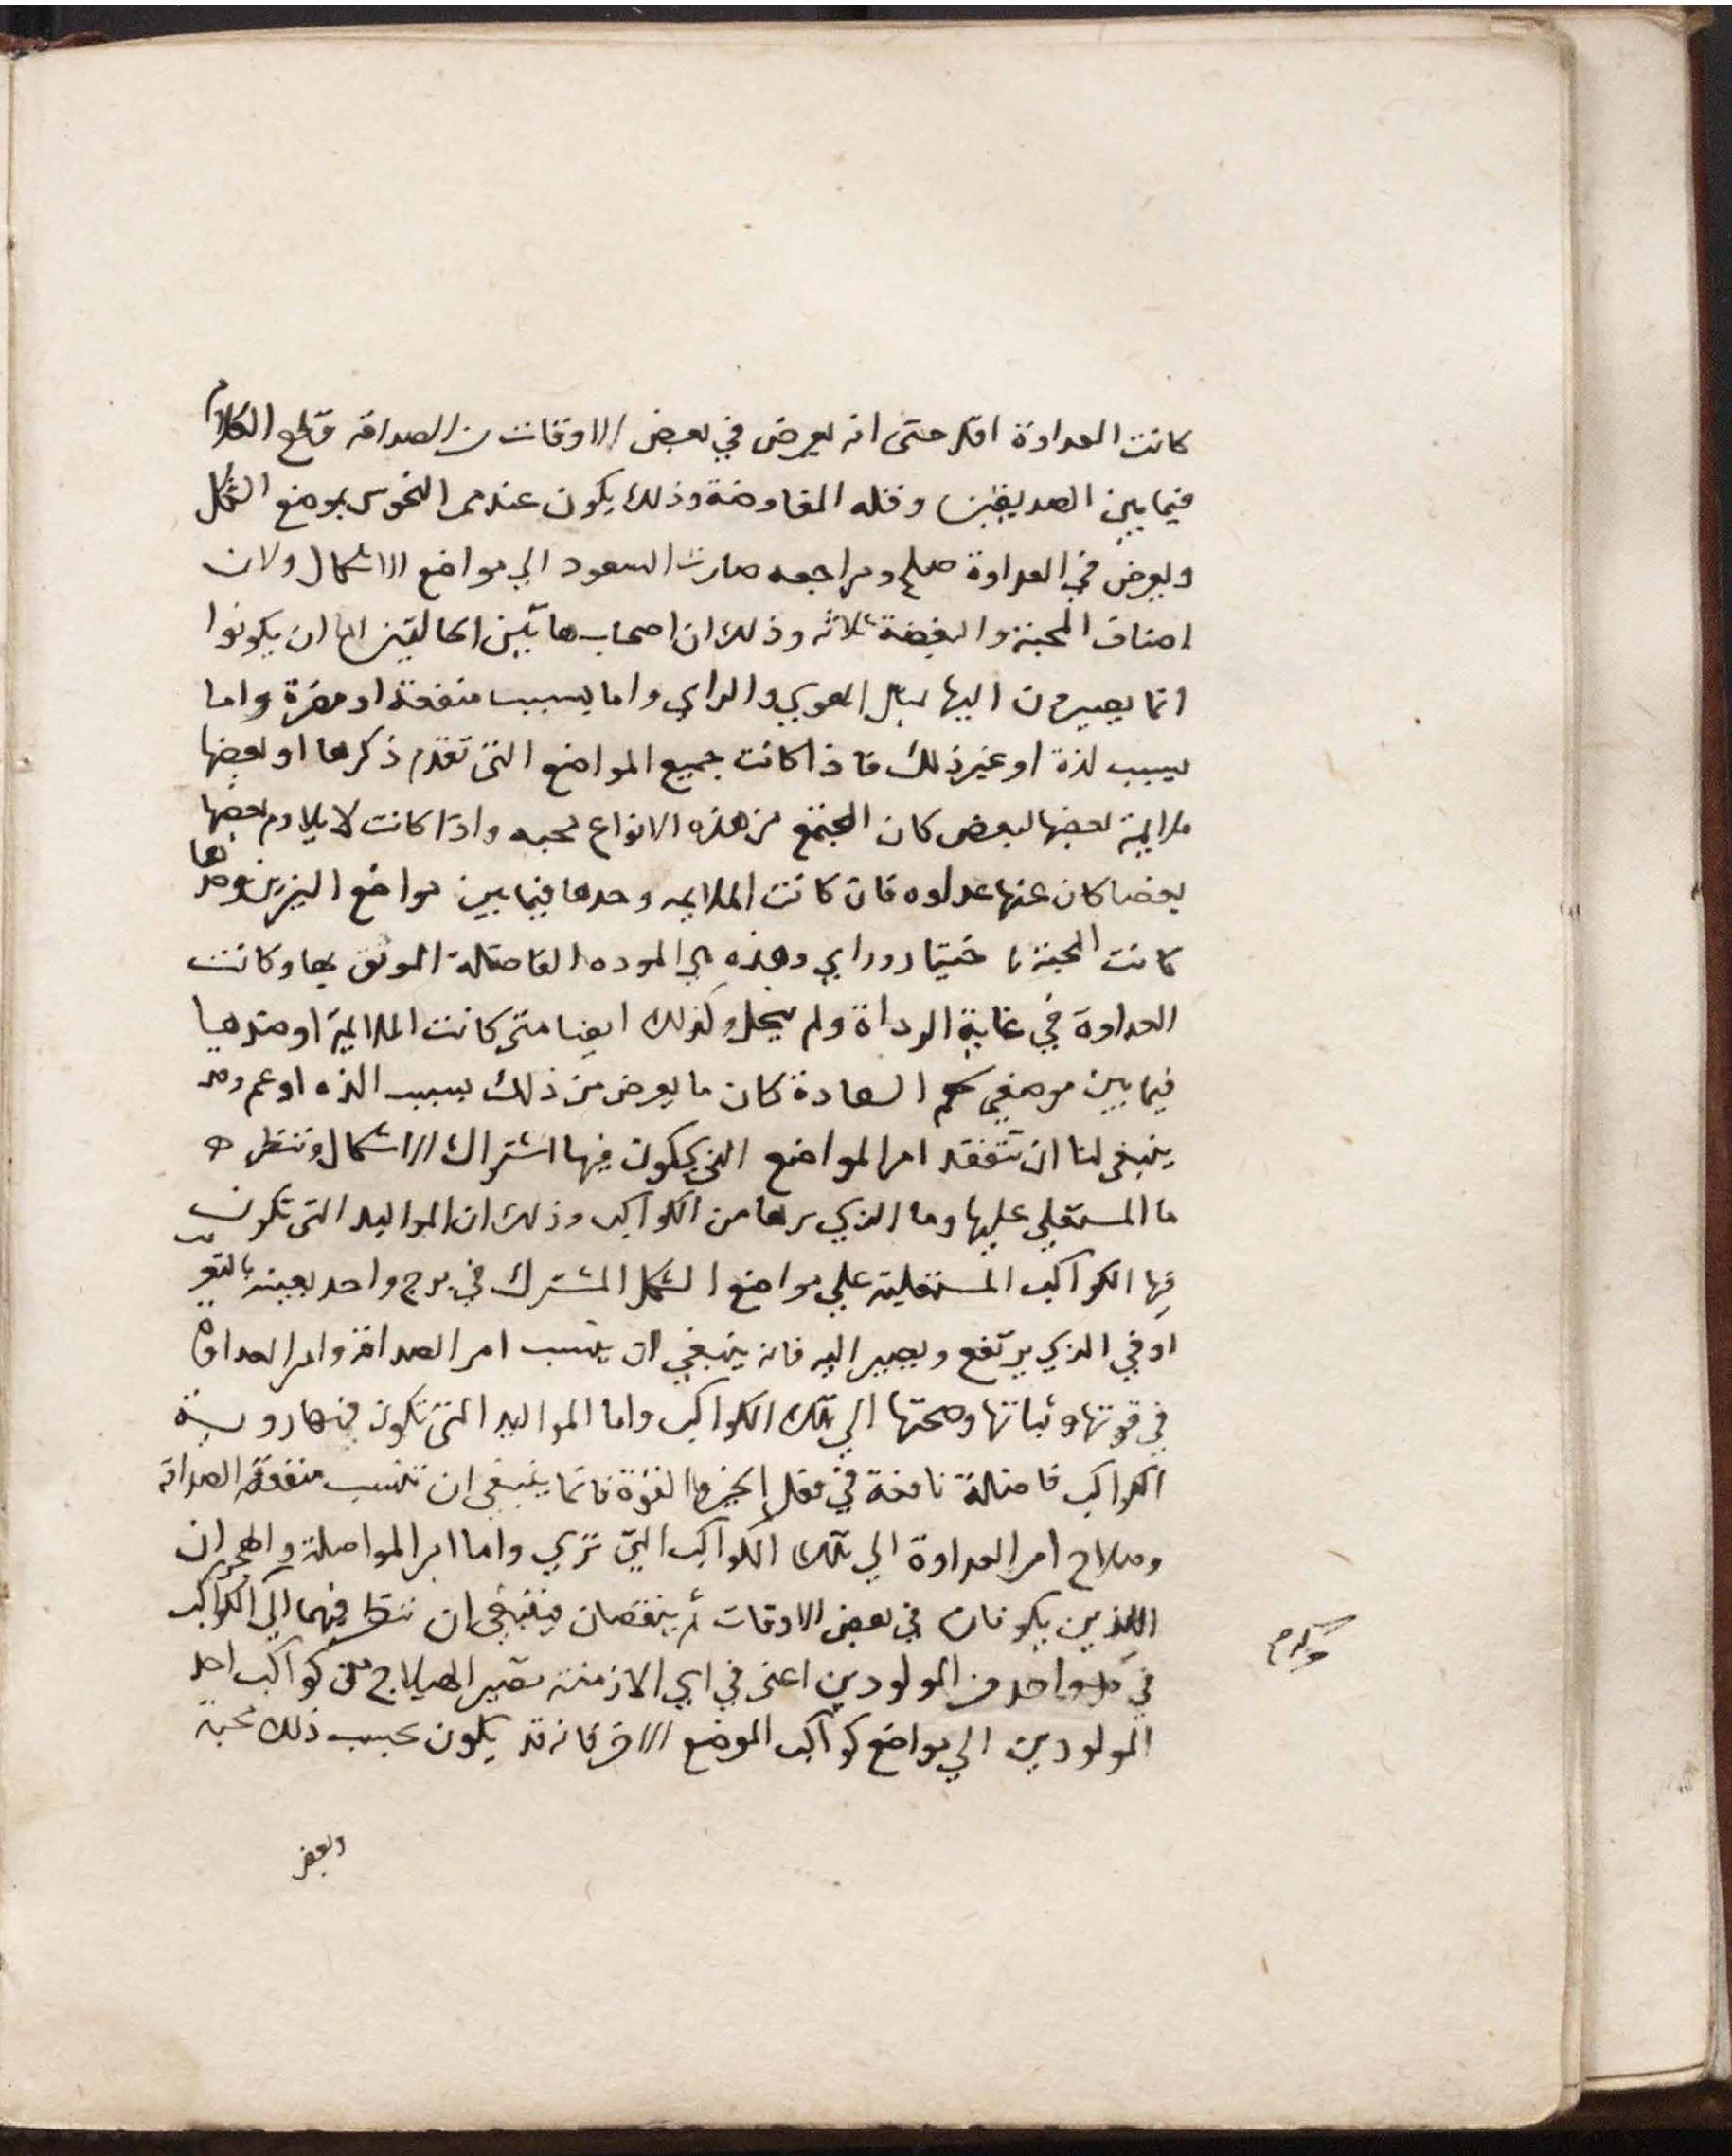 كانت العداوة اقل حتى انه يعرض في بعض الاوقات من الصداقه قطع الكلام
فيما بين الصديقين وقله المفاوضة وذلك يكون عند ممر النحوس بموضع الشكل
ويعرض في العداوة صلح ومراجعه صارت السعود الي مواضع الاشكال ولان
اصناف المحبة والبغضة ثلاثه وذلك ان اصحاب هاتين الحالتين اما ان يكونوا
انما يصيرون اليها الهوي والراي واما بسبب منفعة او مضرة واما
بسبب لذة او غير ذلك فاذا كانت جميع المواضع التى تقدم ذكرها او بعضها
ملايمة بعضها لبعض كان المجتمع من هذه الانواع محبه واذا كانت لا يلاوم بعضها
بعضا كان عنها عداوه فان كانت الملايمه وحدها فيما بين مواضع النيرين وحدها
كانت المحبة باختيار وراي وهذه هي الموده الفاضلة الموثق بها وكانت
العداوة في غاية الرداة ولم وكذلك ايضا متى كانت الملايمة او ضدها
فيما بين موضعي السعادة كان ما يعرض من ذلك بسبب الذه او غم وقد
ينبغى لنا ان نتفقد امر المواضع التى يكون فيها اشتراك الاشكال وننظر
ما المستعلي عليها وما الذي يراها من الكواكب وذلك ان المواليد التى تكون
فيها الكواكب المستعلية علي مواضع الشكل المشترك في برج واحد بعينه بالتقريب
او في الذي يرتفع ويصير اليه فانه ينبغي ان ينسب امر الصداقة وامر العداوة
في قوتها وثباتها وصحتها الي تلك الكواكب واما المواليد التى تكون فيها روية
الكواكب فاضلة نافعة في فعل الخير والقوة فانما ينبغى ان تنسب منفعة الصداقه
وصلاح امر العداوة الي تلك الكواكب التي تري واما امر المواصلة والهجران
اللذين يكونان في بعض الاوقات ثم ينقضان فينبغي ان ننظر فيهما الي الكواكب
في كل واحد من المولودين اعنى في اي الازمنة تصير الهيلاج من كواكب احد
المولودين الي مواضع كواكب الموضع الاخر فانه قد يكون بحسب ذلك محبة
وبعض